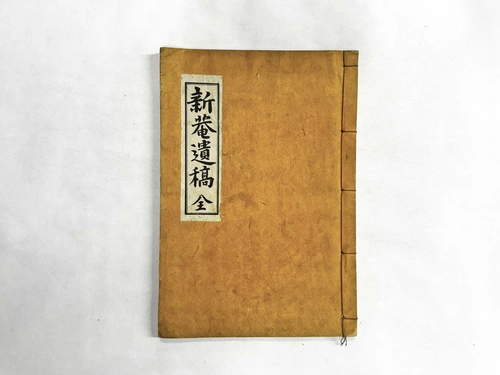 新菴遺稿 全